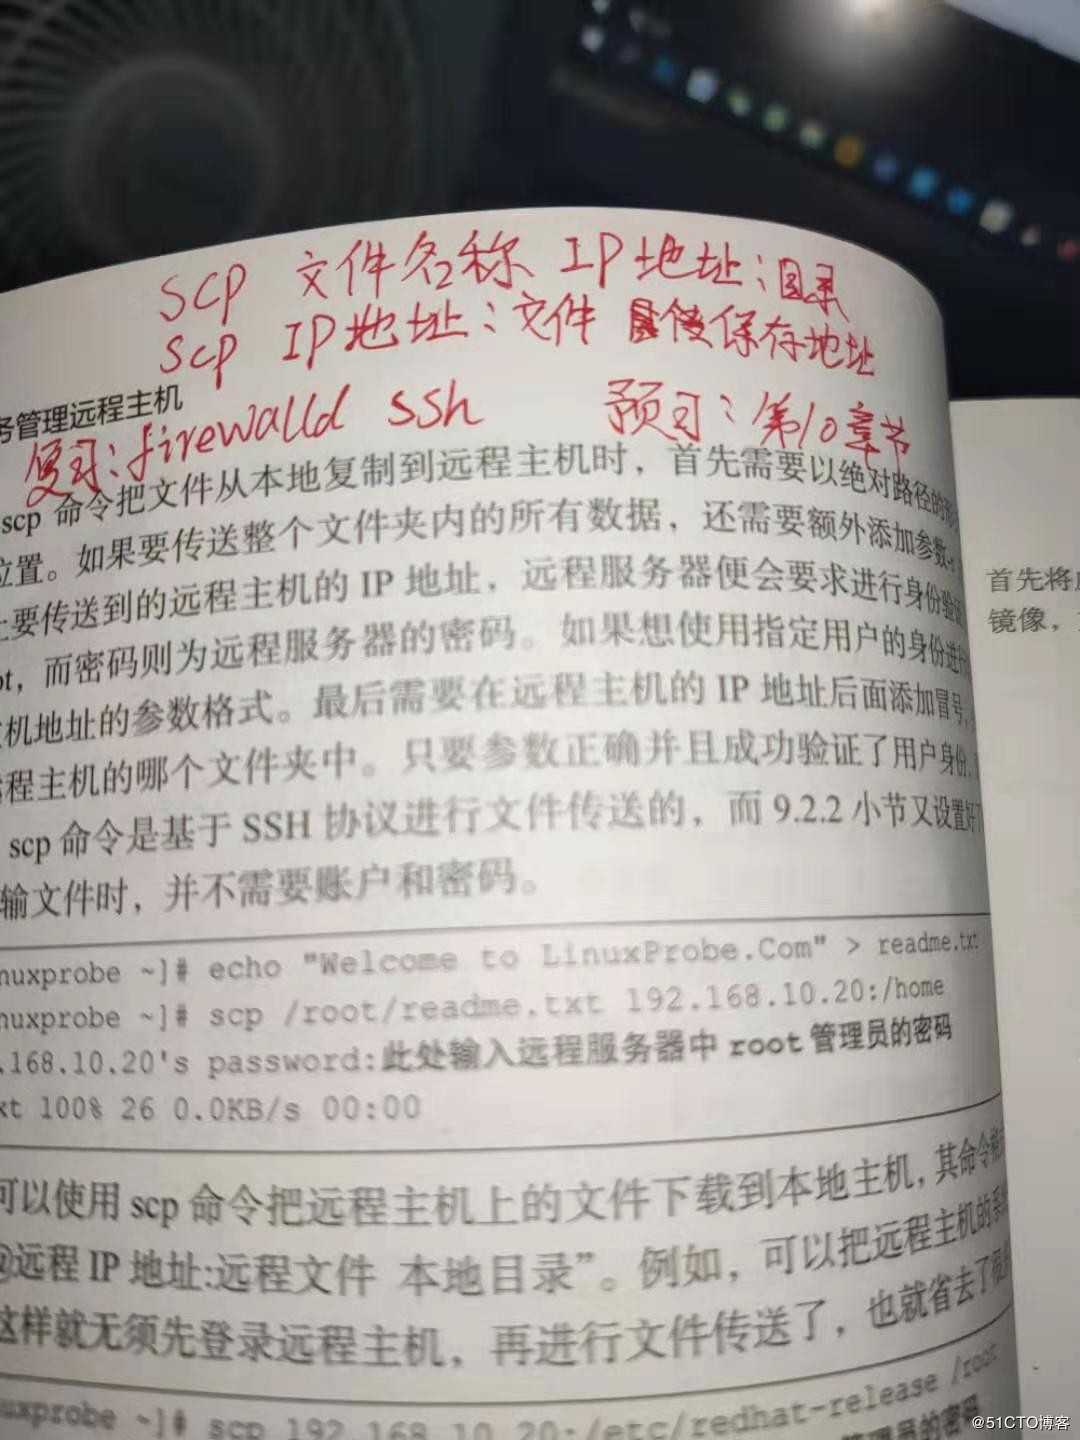 SCP 文件名称 IP地址:目录
scp IP地址:文件 保存地址
务管理远程主机
复习:firewalld ssh 预习:第10章节
scp 命令把文件从本地复制到远程主机时，首先需要以绝对路径的
位置。如果要传送整个文件夹内的所有数据，还需要额外添加参数-r
要传送到的远程主机的 IP 地址，远程服务器便会要求进行身份验证
ot，而密码则为远程服务器的密码。如果想使用指定用户的身份进行
主机地址的参数格式。最后需要在远程主机的 IP 地址后面添加冒号，
远程主机的哪个文件夹中。只要参数正确并且成功验证了用户身份，
scp 命令是基于 SSH 协议进行文件传送的，而 9.2.2 小节又设置好了
输文件时，并不需要账户和密码。
nuxprobe ~]# echo "Welcome to LinuxProbe.Com" > readme.txt
nuxprobe ~]# scp /root/readme.txt 192.168.10.20:/home
.168.10.20's password:此处输入远程服务器中 root 管理员的密码
xt 100% 26 0.0KB/s 00:00
可以使用 scp 命令把远程主机上的文件下载到本地主机，其命令格式
@远程 IP 地址:远程文件 本地目录”。例如，可以把远程主机的系
这样就无须先登录远程主机，再进行文件传送了，也就省去了很
uxprobe ~]# scp 192.168.10.20:/etc/redhat-release /root
管理员的密码
首先将
镜像，
@51CTO博客